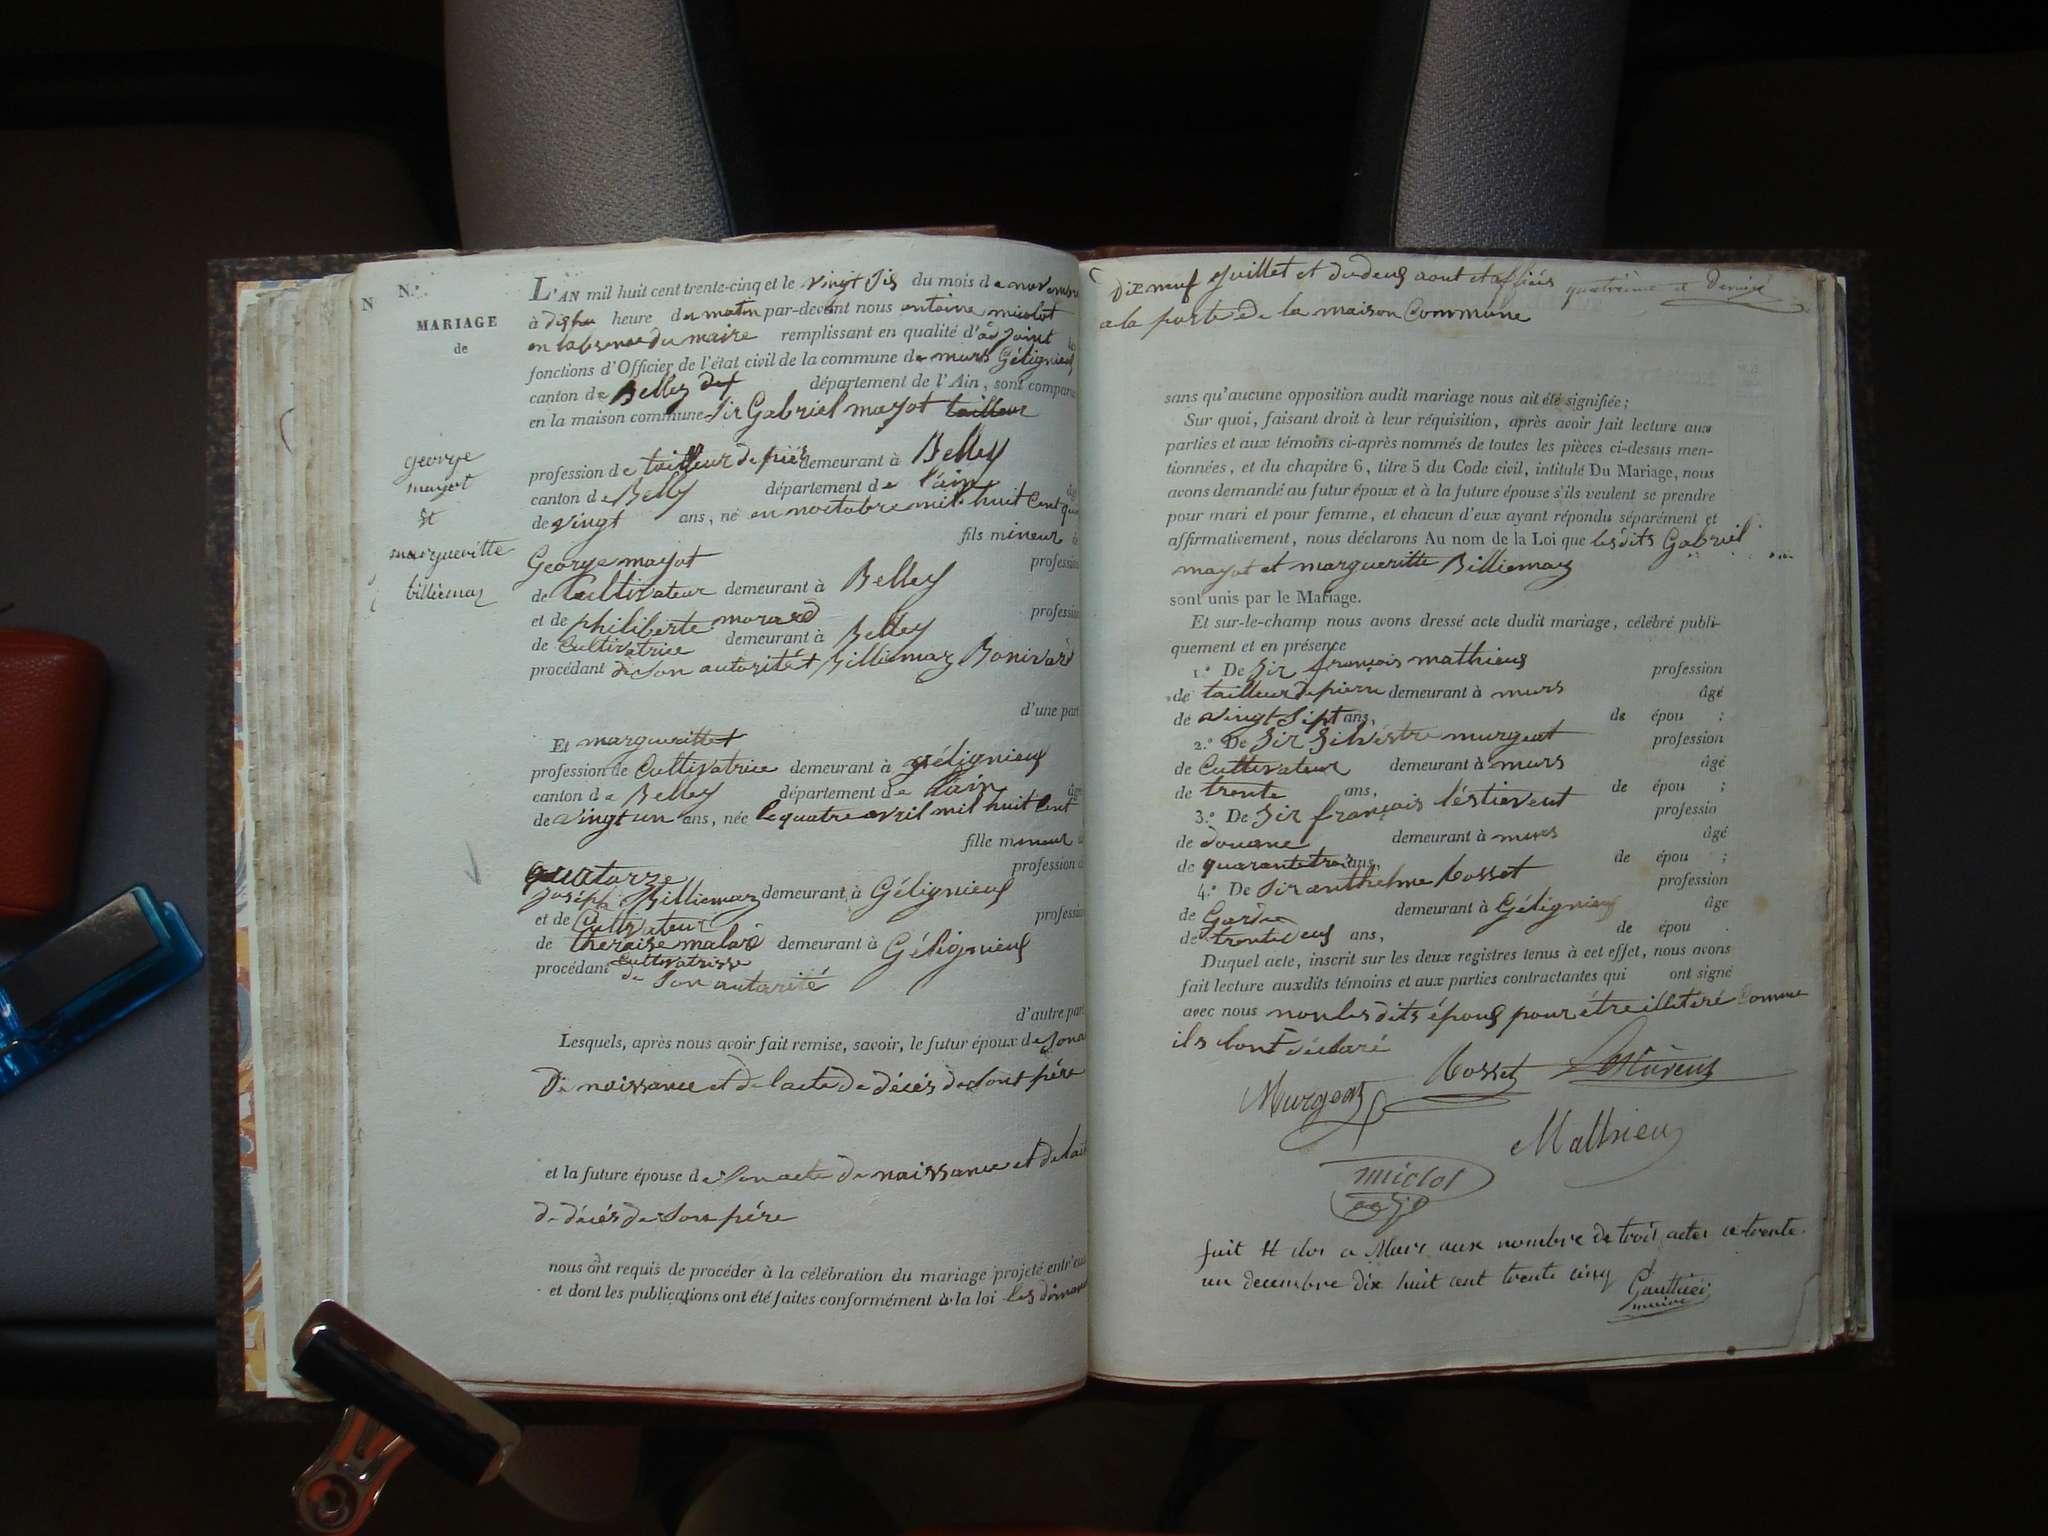 N
N.°
MARIAGE
de
george
mayot
et
margueritte
billiemaz
L'AN mil huit cent trente-cinq et le vingt sis du mois de novembre
à dishu heure du matin par-devant nous antoine miclot
en labsence du maire remplissant en qualité d'adjoint les
fonctions d'Officier de l'état civil de la commune de murs Gélignieux
canton de Belley département de l'Ain, sont comparu
en la maison commune sir Gabriel mayot tailleur
profession de tailleur de piers demeurant à Belley
canton de Belley département de l'ain âgé
de vingt ans, né en noctobre mil huit Cent
fils mineur
George mayot profession
de Cultivateur demeurant à Belley
et de philiberte morard profession
de Cultivatrice demeurant à Belley
procédant de son autorité Billiemaz Bonivard
d'une part
Et margueritte
profession de Cultivatrice demeurant à gélignieux
canton de Belley département de l'ain âgé
de vingt un ans, née le quatre avril mil huit Cent
fille mineur
quatorze profession
joséph Billiemaz demeurant à Gélignieux
et de Cultivateur profession
de theraise malard demeurant à Gélignieux
procédant Cultivatrisse
de son autorité
d'autre part
Lesquels, après nous avoir fait remise, savoir, le futur époux de son a
De naissance et de lacte de décés de sont pére
et la future épouse de son acte de naissance et de lait
de décés de son pére
nous ont requis de procéder à la célébration du mariage projeté entr'eux
et dont les publications ont été faites conformément à la loi les diman
Dix neuf juillet et du deux aout et affiiés quatriéme et Dernié
a la porte de la maison Commune
sans qu'aucune opposition audit mariage nous ait été signifiée;
Sur quoi, faisant droit à leur réquisition, après avoir fait lecture aux
parties et aux témoins ci-après nommés de toutes les pièces ci-dessus men-
tionnées, et du chapitre 6, titre 5 du Code civil, intitulé Du Mariage, nous
avons demandé au futur époux et à la future épouse s'ils veulent se prendre
pour mari et pour femme, et chacun d'eux ayant répondu séparément et
affirmativement, nous déclarons Au nom de la Loi que lesdits Gabriel
mayot et margueritte Billiemaz
sont unis par le Mariage.
Et sur-le-champ nous avons dressé acte dudit mariage, célébré publi-
quement et en présence
1.° De Sir françois mathieux profession
de tailleur de pierre demeurant à murs âgé
de vingt sipt ans, de épou ;
2.° De Sir Silvéstre murgeat profession
de Cultivateur demeurant à murs âgé
de trente ans, de épou ;
3.° De Sir français léstievent professio
de douane demeurant à murs âgé
de quarante trois ans, de épou ;
4.° De Sir anthelme Cosset profession
de Garde demeurant à Gélignieux âge
de trente deux ans, de épou .
Duquel acte, inscrit sur les deux registres tenus à cet effet, nous avons
fait lecture auxdits témoins et aux parties contractantes qui ont signé
avec nous non les dits époux pour étre illitéré Comme
ils lont déclaré
Murgeat Cosset
Mathieu
miclot
adj
fait et clos a Murs aux nombre de trois actes ce trente
un decembre dix huit cent trente cinq Gauthier
maire